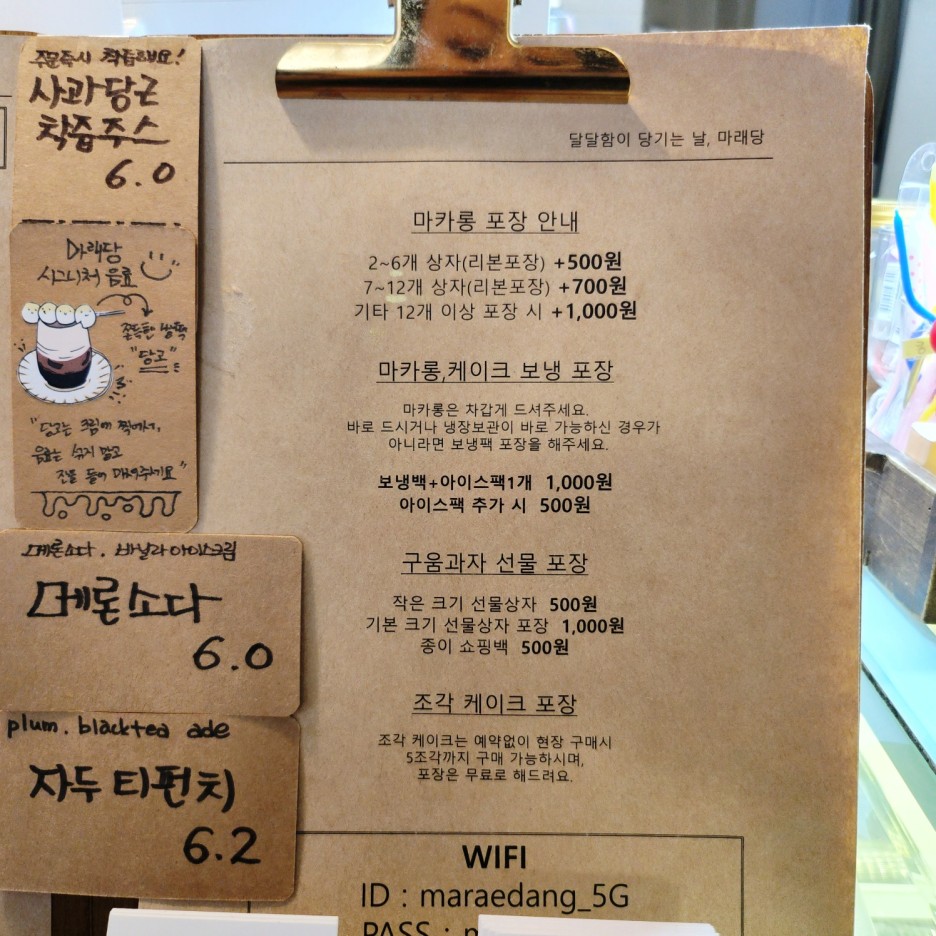 주문즉시 착즙해요!
사과당근
착즙주스
6.0
마래당
시그니처 음료
쫀득한 쌀떡
"당고"
"당고는 크림에 찍어서,
음료는 섞지 말고
잔을 들어 마셔주세요"
메론소다. 바닐라아이스크림
메론소다
6.0
plum. blacktea ade
자두티펀치
6.2
달달함이 당기는 날, 마래당
마카롱 포장 안내
2~6개 상자(리본포장) +500원
7~12개 상자(리본포장) +700원
기타 12개 이상 포장 시 +1,000원
마카롱,케이크 보냉 포장
마카롱은 차갑게 드셔주세요.
바로 드시거나 냉장보관이 바로 가능하신 경우가
아니라면 보냉팩 포장을 해주세요.
보냉백+아이스팩1개 1,000원
아이스팩 추가 시 500원
구움과자 선물 포장
작은 크기 선물상자 500원
기본 크기 선물상자 포장 1,000원
종이 쇼핑백 500원
조각 케이크 포장
조각 케이크는 예약없이 현장 구매시
5조각까지 구매 가능하시며,
포장은 무료로 해드려요.
WIFI
ID : maraedang_5G
PASS : m